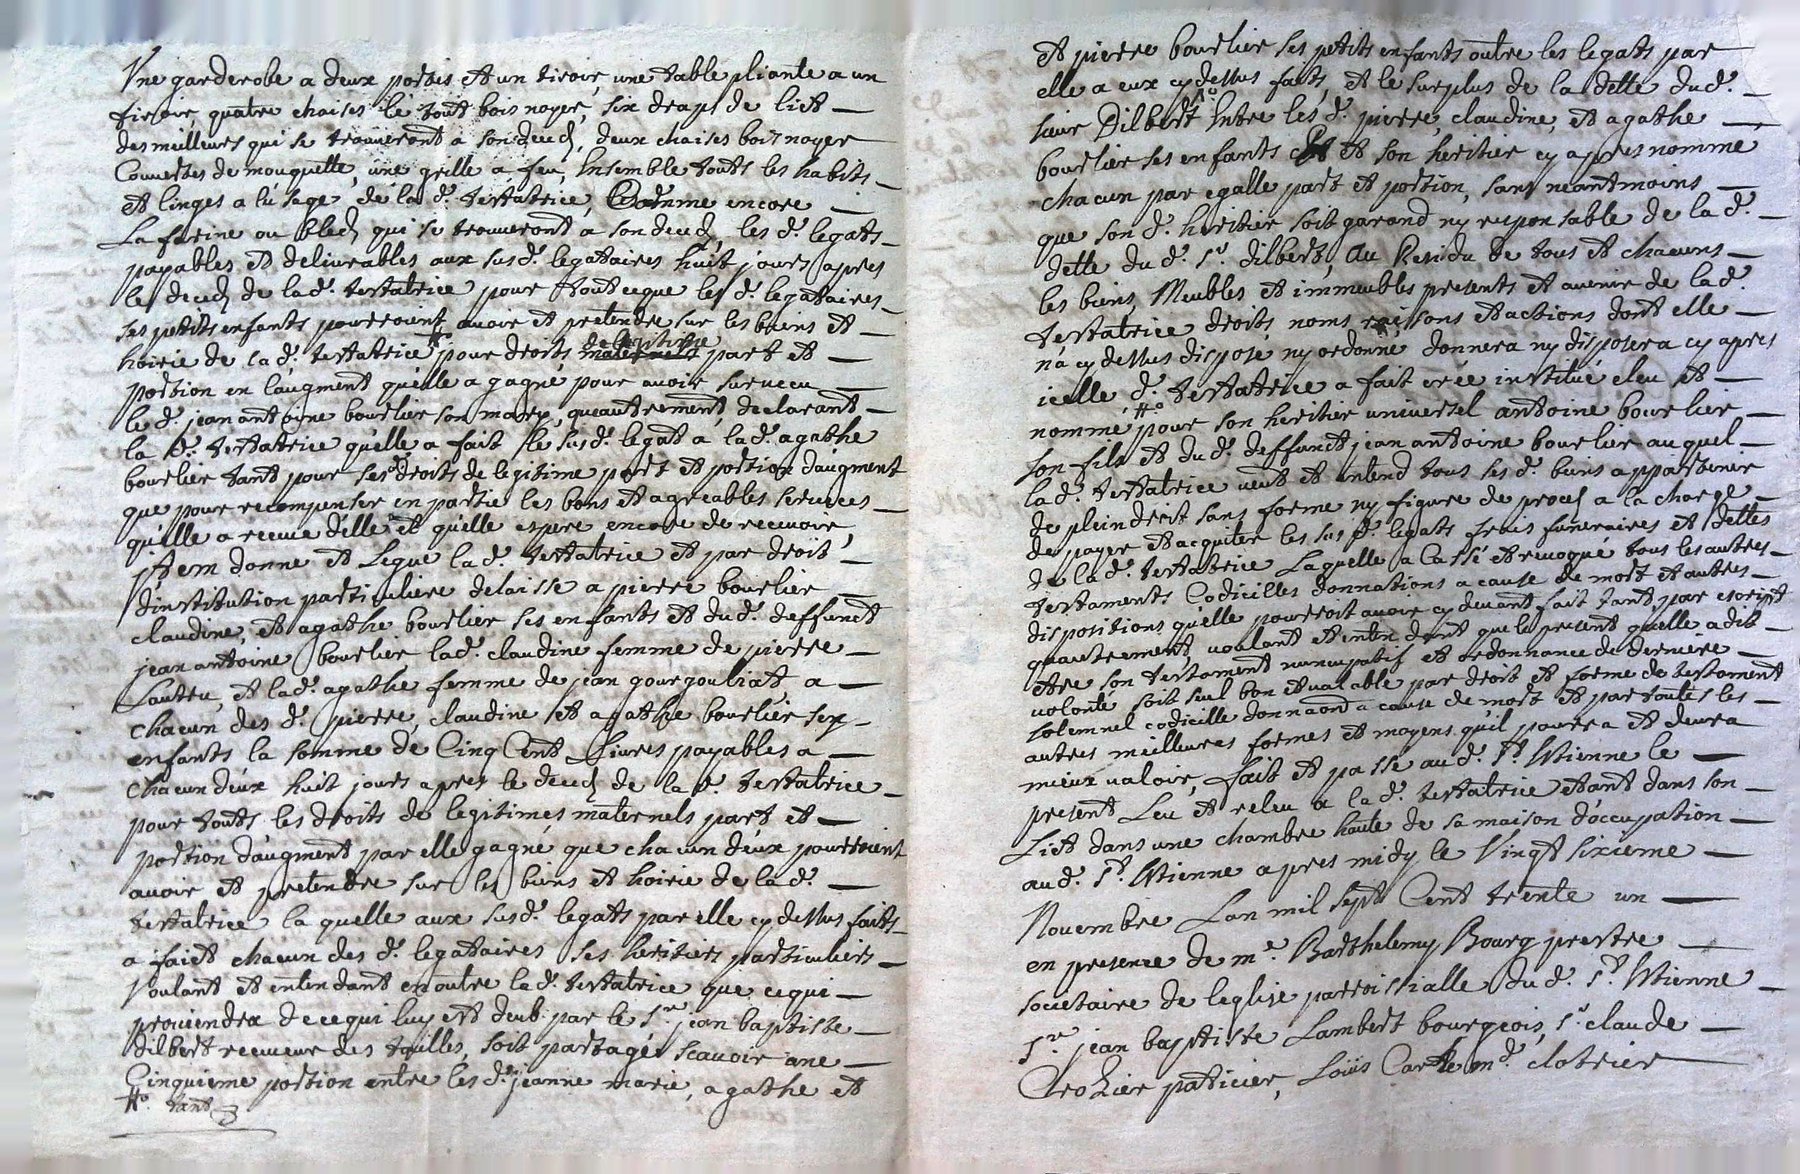 Une garderobe a deux portes et un tiroir, une table pliante a un
tiroir, quatre chaises le tout bois noyer, six draps de lict
des meilleurs qui se trouveront a son deced, deux chaises bois noyer
Couvertes de mouquette, une grille a feu, Ensemble touts les habits
et linges a l'usage de la d. testatrice, Comme encore
La farine ou bled qui se trouveront a son deced, les d. legats
payables et delivrables aux susd. legataires huit jours apres
le deced de lad. testatrice pour tout ceque les d. legataires
ses petits enfants pourroient avoir et pretendre sur les biens et
hoirie de la d. testatrice pour droits de legitime part et
portion en l'augment qu'elle a gagné pour avoir survecu
le d. jean antoine bourlier son mary, queautrement, declarant
la d. testatrice qu'elle a fait le susd. legat a la d. agathe
bourlier tant pour ses droits de legitime part et portion d'augment
que pour recompenser en partie les bons et agreables services
qu'elle a receue d'elle et qu'elle espere encore de recevoir,
Item donne et Legue la d. testatrice et par droit
d'institution particuliere delaisse a pierre bourlier
claudine, et agathe bourlier ses enfants et dud. deffunct
jean antoine bourlier lad. claudine femme de pierre
et lad. agathe femme de jean gourgouliat, a
chacun des d. pierre, claudine et agathe bourlier ses
enfants la somme de Cinq Cent Livres payables a
chacun d'eux huit jours apres le deced de la d. testatrice
pour touts les droits de legitimes maternels part et
portion d'augment par elle gagné, que chacun d'eux pourroient
avoir et pretendre sur les biens et hoirie de la d.
testatrice la quelle aux susd. legats par elle cy dessus faits
a fait chacun des d. legataires ses heritiers particuliers
Voulant et entendant en outre la d. testatrice que cequi
proviendra de cequi luy est deub par le Sr. jean baptiste
dilbert receveur des tailles, soit partagé scavoir une
Cinquieme portion entre les d. jeanne marie, agathe et
tant
et pierre bourlier ses petits enfants outre les legats par
elle a eux cy dessus faits, et le surplus de la dette dud.
sieur Dilbert Entre les d. pierre, claudine, et agathe
bourlier ses enfants et son heritier cy apres nommé
chacun par egalle part et portion, sans neantmoins
que son d. heritier soit garand ny responsable de la d.
dette du d. Sr. dilbert, Au Residu de tous et chacuns
les biens Meubles et immeubles presents et avenir de la d.
testatrice droits noms raisons et actions dont elle
n'a cy dessus disposé ny ordonné donnera ny disposera cy apres
icelle d. testatrice a fait creé institué eleu et
nommé pour son heritier universel antoine bourlier
son fils et du d. deffunct jean antoine bourlier auquel
la d. testatrice veut et entend tous ses d. biens appartenir
de plein droit sans forme ny figure de proced a la charge
de payer et acquiter les sus d. legats frais funeraires et dettes
de la d. testatrice Laquelle a Cassé et revoqué tous les autres
testaments Codicilles donnations a cause de mort et autres
dispositions qu'elle pourroit avoir cy devant fait tant par escript
queautrement, voulant et entendant que le present quelle a dit
etre son testament nuncupatif et ordonnance de derniere
volonté soit seul bon et valable par droit et forme de testament
solemnel codicille donnaon a cause de mort et par toutes les
autres meilleures formes et moyens qu'il pourra et devra
mieux valoir, fait et passé au d. St. Etienne le
present Leu et releu a la d. testatrice etant dans son
Lict dans une chambre haute de sa maison d'occupation
au d. St. Etienne apres midy le Vingt sixieme
Novembre Lan mil sept Cent trente un
en presence de me. Barthelemy Bourg prestre
societaire de leglise parroissialle du d. St. Etienne
Sr. jean baptiste Lambert bourgeois, Sr. claude
Crozier paticier, Loüis md. clotrier